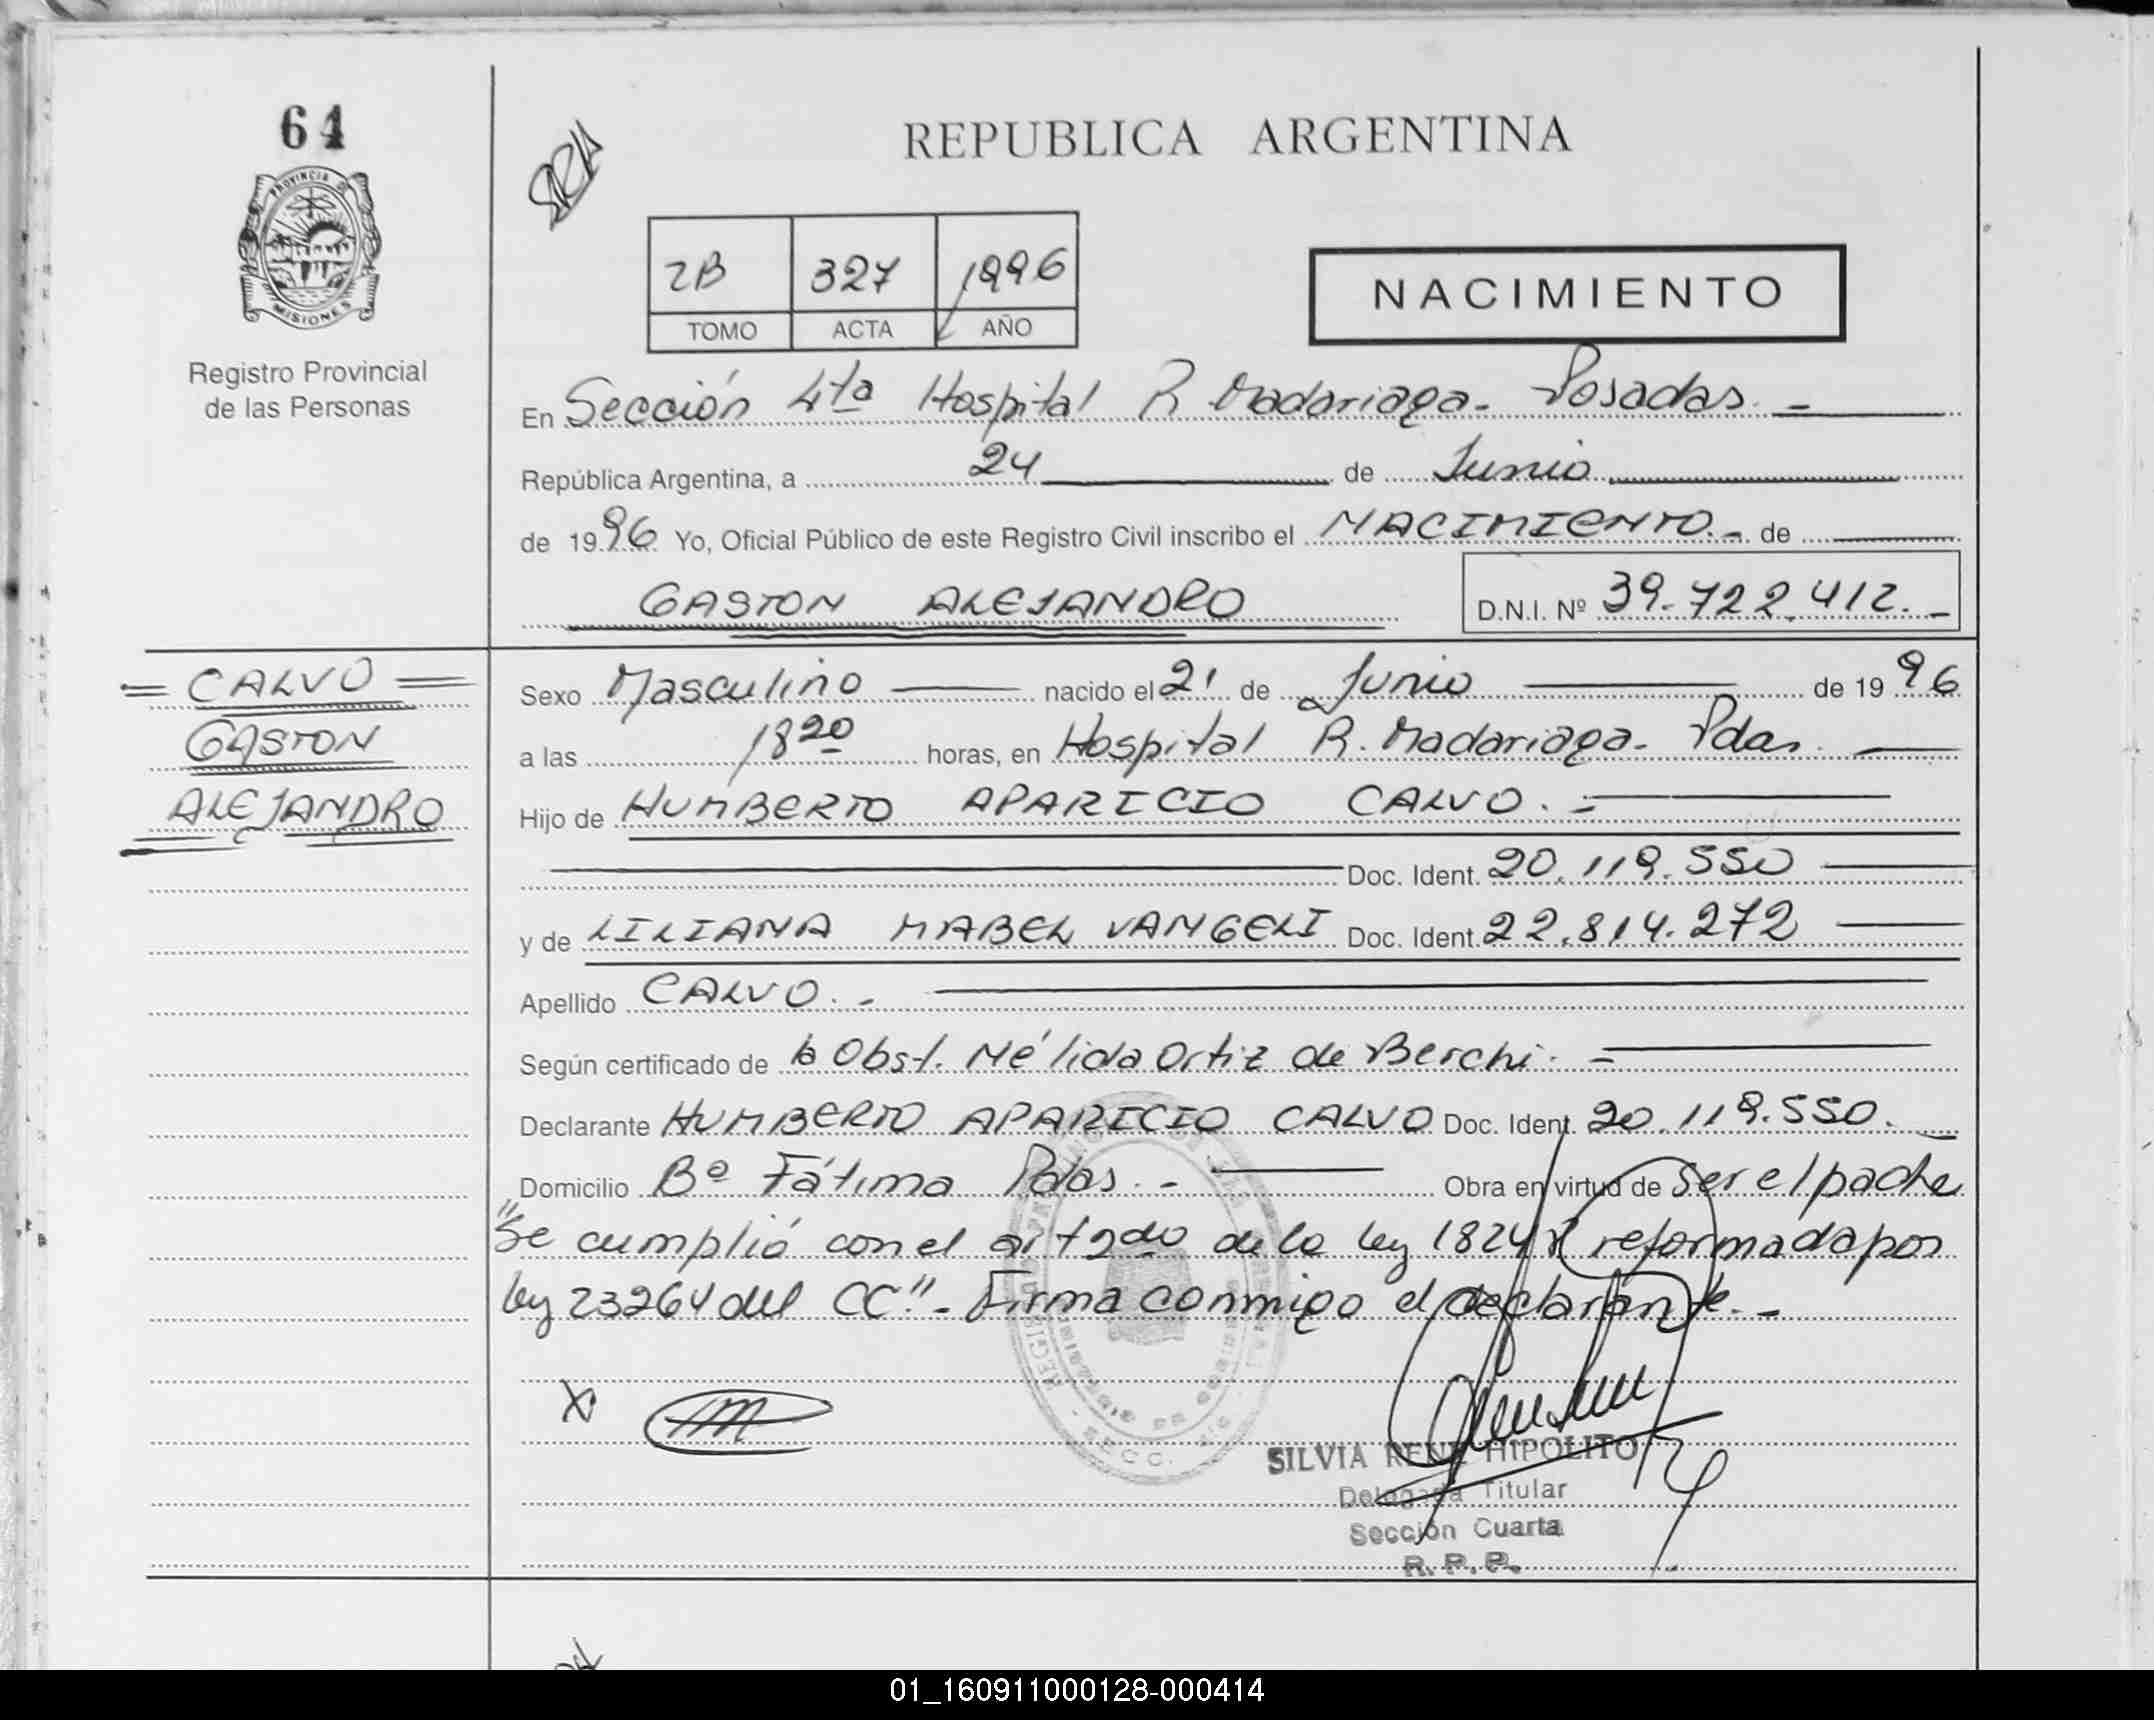 64
PROVINCIA D
MISIONES
Registro Provincial
de las Personas
REPUBLICA ARGENTINA
2B 327 1996
TOMO ACTA AÑO
NACIMIENTO
En Sección 4ta Hospital R Madariaga - Posadas. -
República Argentina, a 24 de Junio
de 1996 Yo, Oficial Público de este Registro Civil inscribo el NACIMIENTO. - de
GASTON ALEJANDRO
D.N.I. Nº 39.722.412. -
= CALVO =
GASTON
ALEJANDRO
Sexo Masculino nacido el 21 de Junio de 1996
a las 18 20 horas, en Hospital R. Madariaga - Pdas.
Hijo de HUMBERTO APARICIO CALVO. -
Doc. Ident. 20.119.550
y de LILIANA MABEL VANGELI Doc. Ident. 22.814.272
Apellido CALVO. -
Según certificado de la Obst. Nélida Ortiz de Berchi. -
Declarante HUMBERTO APARICIO CALVO Doc. Ident. 20.119.550. -
Domicilio Bº Fátima Pdas. - Obra en virtud de ser el padre
"Se cumplió con el art 2do de la ley 18248 reformada por
ley 23264 del CC". - Firma conmigo el declarante. -
X
SILVIA RENE HIPOLITO
Delegada Titular
Sección Cuarta
R. P. P.
01_160911000128-000414